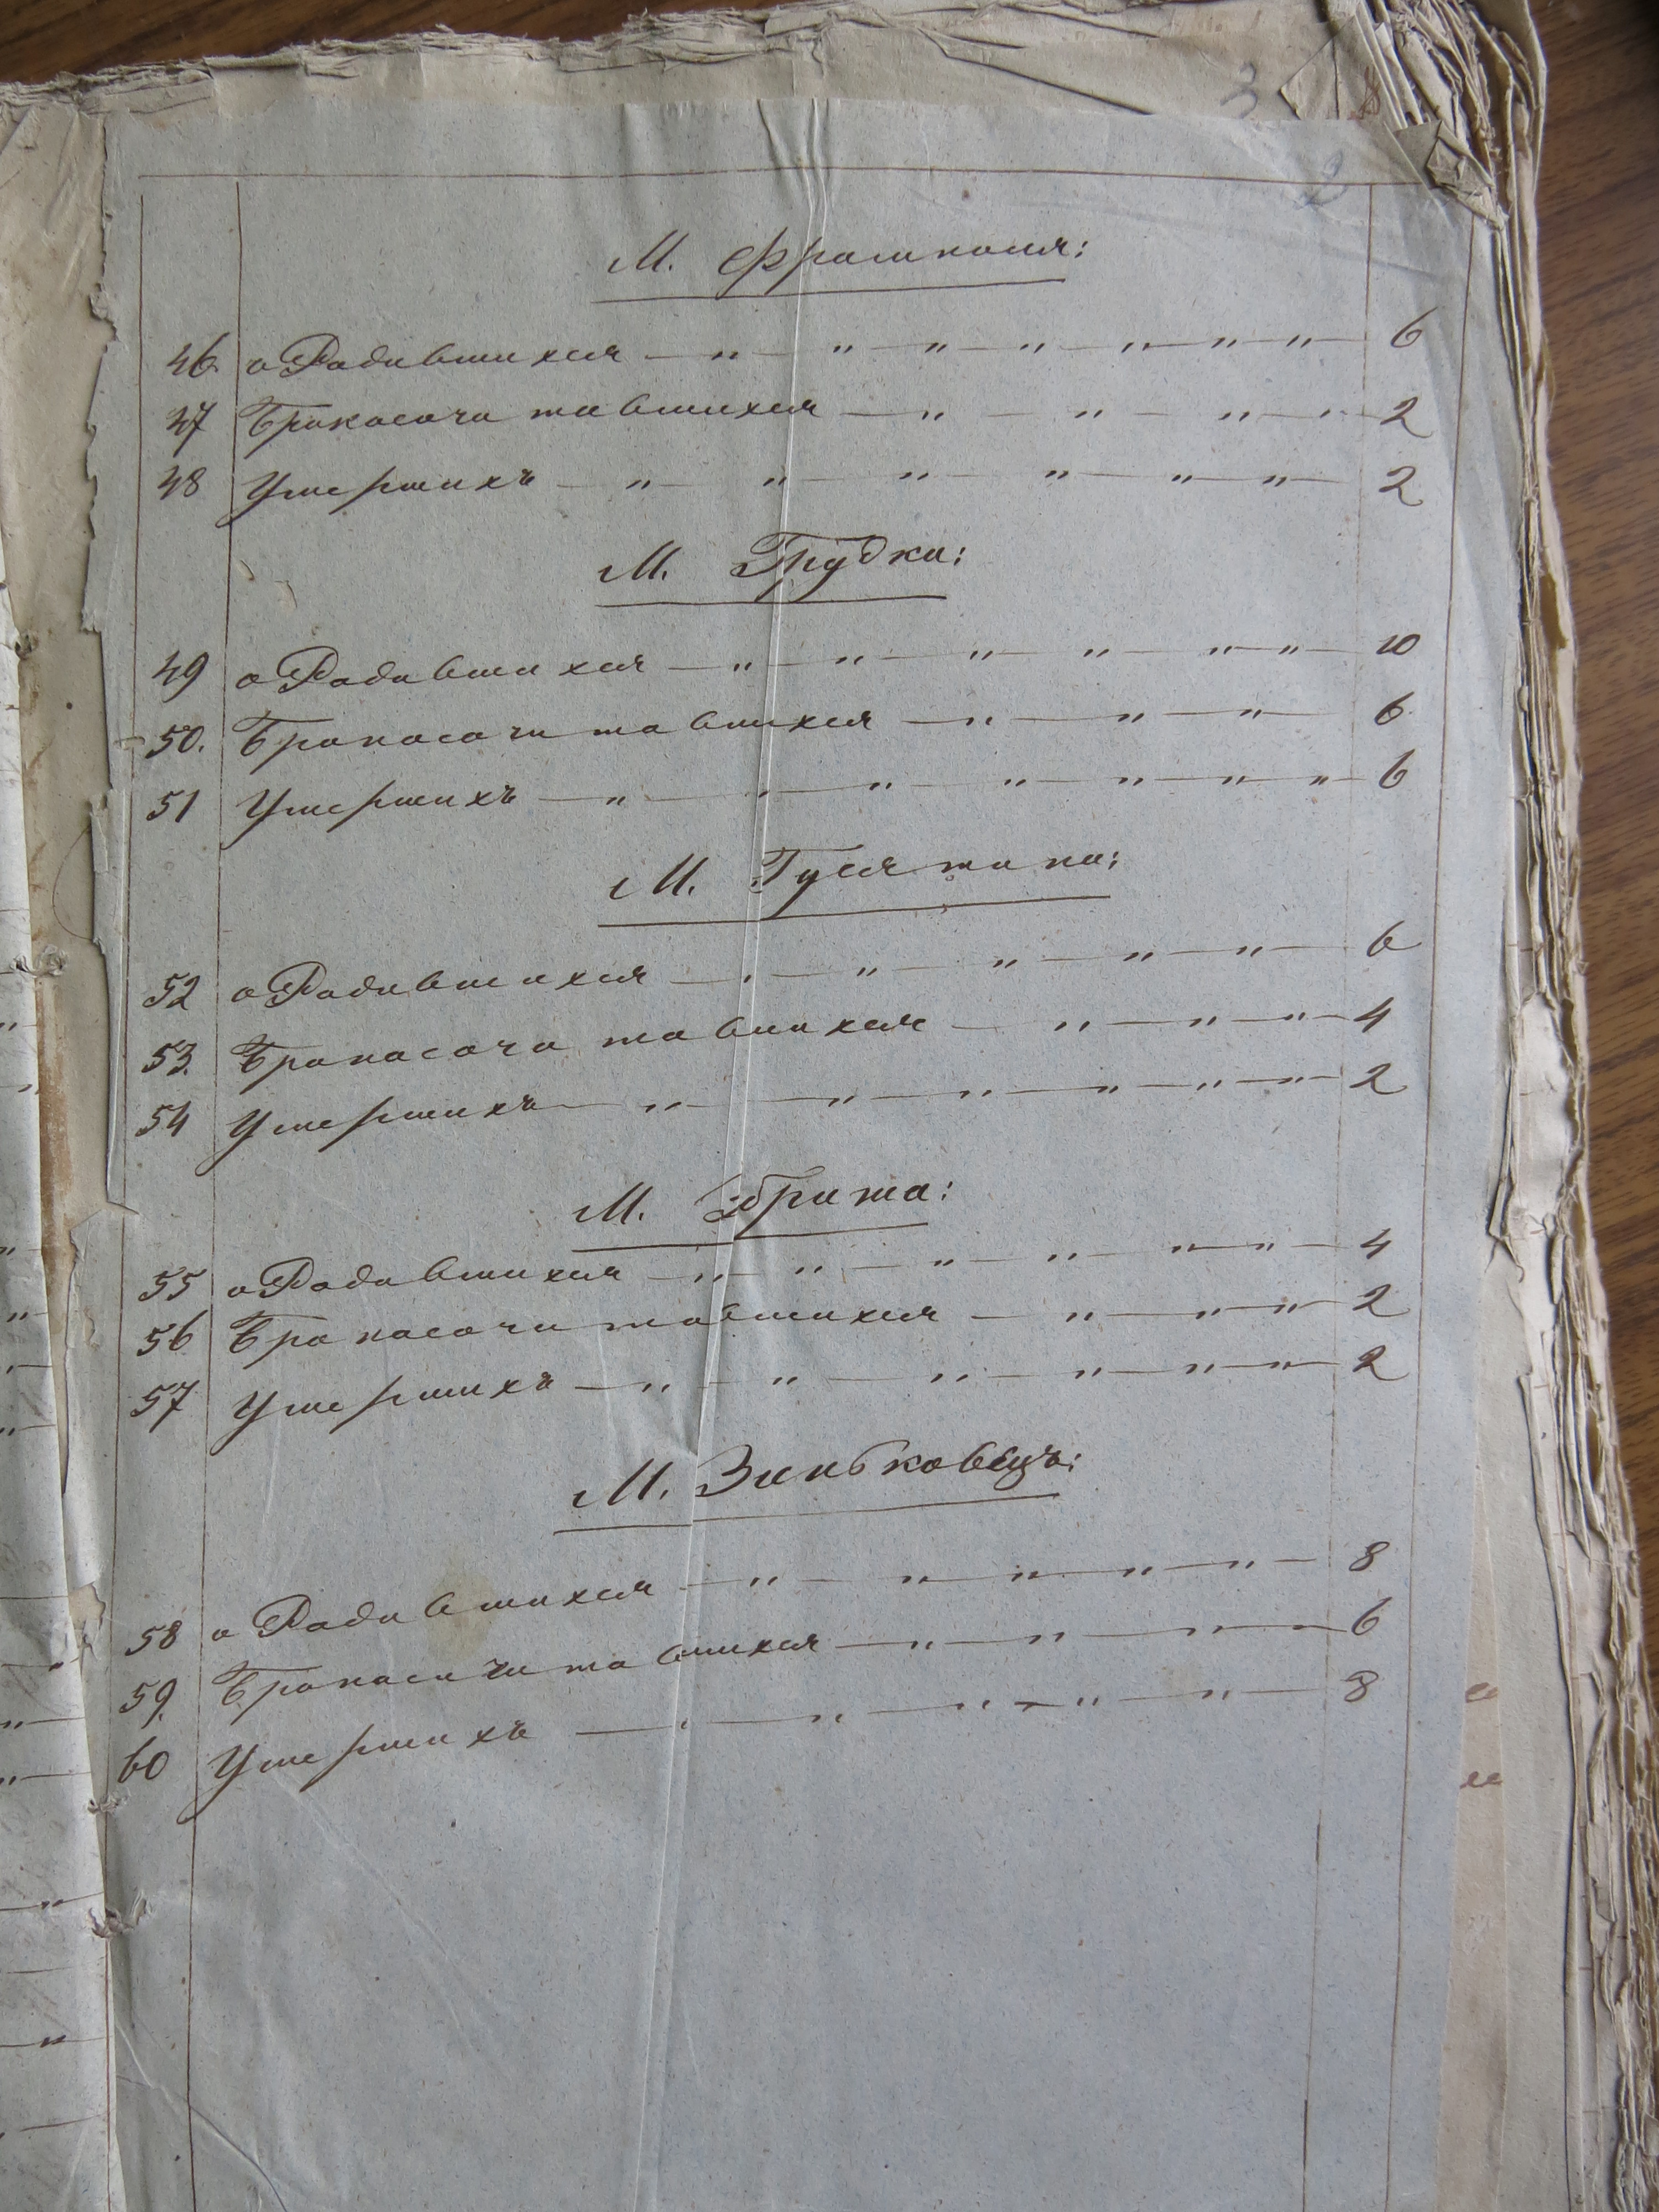 3
2
М. Фрампопля:
46. о Родившихся — „ — „ — „ — „ — „ — „ — „ — 6
47 Бракосочитавшихся — „ — „ — „ — „ — 2
48 Умершихъ — „ — „ — „ — „ — „ — „ — 2
М. Грудка:
49 о Родившихся — „ — „ — „ — „ — „ — „ — 10
50. Бракосочитавшихся — „ — „ — „ — 6
51 Умершихъ — „ — „ — „ — „ — „ — „ — „ — 6
М. Гусятина:
52 о Родившихся — „ — „ — „ — „ — „ — 6
53. Бракосочитавшихся — „ — „ — „ — 4
54 Умершихъ — „ — „ — „ — „ — „ — „ — 2
М. Збрижа:
55 о Родившихся — „ — „ — „ — „ — „ — „ — 4
56 Бракосочитавшихся — „ — „ — „ — 2
57 Умершихъ — „ — „ — „ — „ — „ — „ — 2
М. Зиньковецъ:
58 о Родившихся — „ — „ — „ — „ — „ — 8
59. Бракосочитавшихся — „ — „ — „ — „ — 6
60 Умершихъ — „ — „ — „ — „ — „ — 8